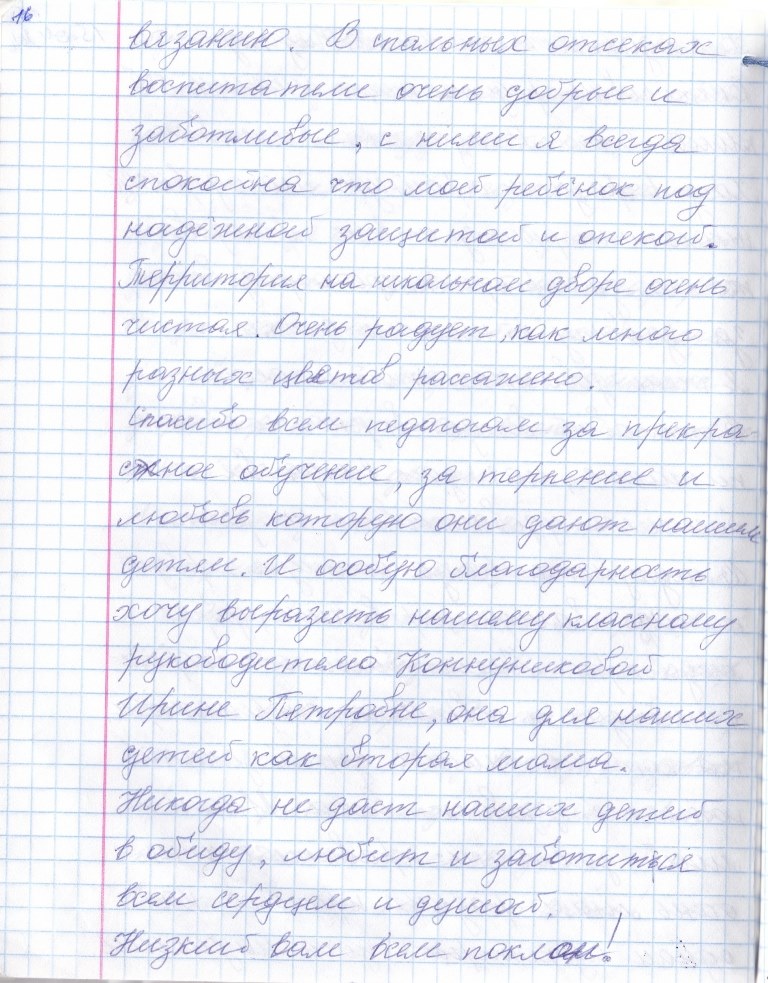 16
вязанию. В спальных отсеках
воспитатели очень добрые и
заботливые, с ними я всегда
спокойна что мой ребёнок под
надёжной защитой и опекой.
Территория на школьном дворе очень
чистая. Очень радует, как много
разных цветов рассажено.
Спасибо всем педагогам за прекра-
сное обучение, за терпение и
любовь которую они дают нашим
детям. И особую благодарность
хочу выразить нашему классному
руководителю
Ирине Петровне, она для наших
детей как вторая мама.
Никогда не даст наших детей
в обиду, любит и заботиться
всем сердцем и душой.
Низкий вам всем поклон!